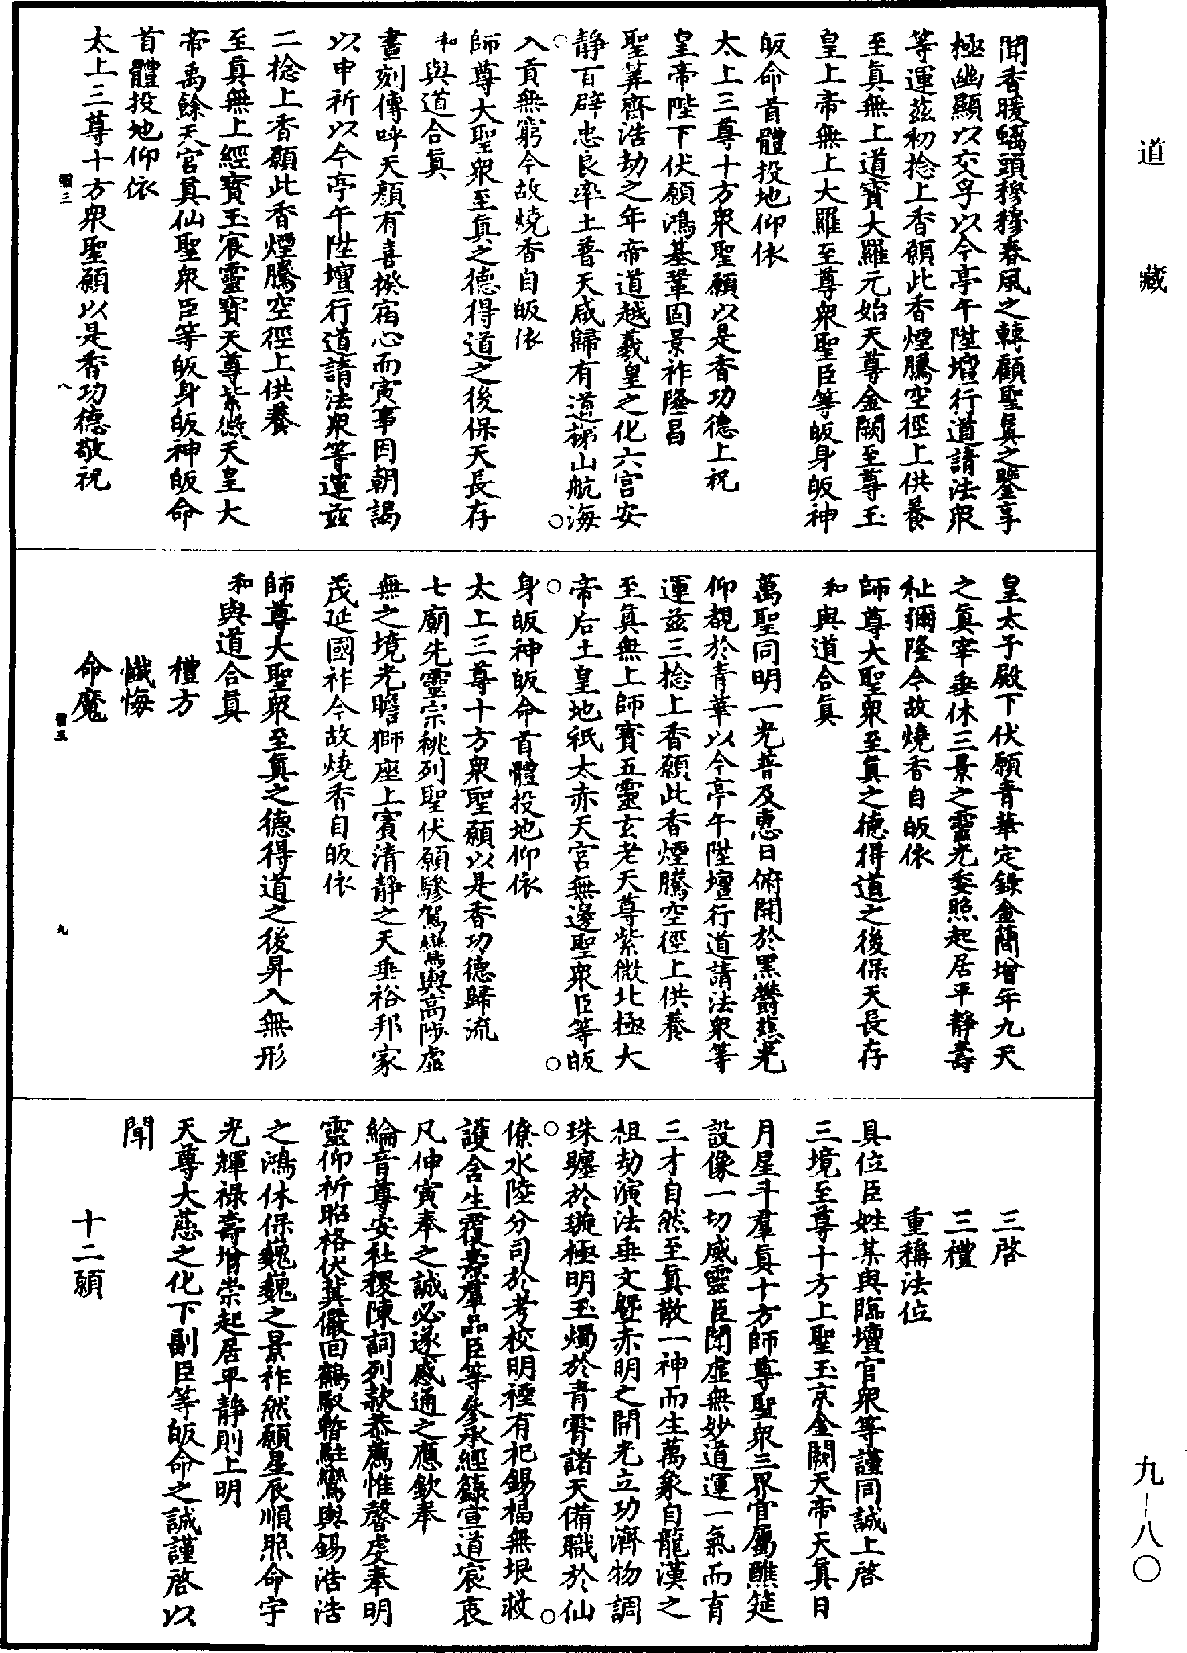 聞香暖螭頭穆穆春風之轉顧聖真之鑒享
極幽顯以交孚以今亭午陞壇行道請法衆
等運茲初捻上香願此香煙騰空徑上供養
至真無上道寶大羅元始天尊金闕至尊玉
皇上帝無上大羅至尊衆聖臣等皈身皈神
皈命首體投地仰依
太上三尊十方衆聖願以是香功德上祝
皇帝陛下伏願鴻基鞏固景祚隆昌
聖筭齊浩劫之年帝道越羲皇之化六宮安
静百辟忠良率土普天咸歸有道梯山航海
入貢無窮今故燒香自皈依
師尊大聖衆至真之德得道之後保天長存
和與道合真
晝刻傳呼天顏有喜揆宿心而寅事因朝謁
以申祈以今亭午陞壇行道請法衆等運茲
二捻上香願此香煙騰空徑上供養
至真無上經寶玉宸靈寶天尊紫微天皇大
帝禹餘天官真仙聖衆臣等皈身皈神皈命
首體投地仰依
太上三尊十方衆聖願以是香功德敬祝
八
皇太子殿下伏願青華定錄金簡增年九天
之真宰垂休三景之靈光委照起居平靜壽
祉彌隆今故燒香自皈依
師尊大聖衆至真之德得道之後保天長存
和與道合真
萬聖同明一光普及惠日俯開於黑欝慈光
仰覩於青華以今亭午陞壇行道請法衆等
運茲三捻上香願此香煙騰空徑上供養
至真無上師寶五靈玄老天尊紫微北極大
帝后土皇地祇太赤天宮無邊聖衆臣等皈
身皈神皈命首體投地仰依
太上三尊十方衆聖願以是香功德歸流
七廟先靈宗祧列聖伏願驂駕鸞輿高陟虛
無之境光瞻獅座上賓清靜之天垂裕邦家
茂延國祚今故燒香自皈依
師尊大聖衆至真之德得道之後昇入無形
和與道合真
禮方
懺悔
命魔
九
三啓
三禮
重稱法位
具位臣姓某與臨壇官衆等謹同誠上啓
三境至尊十方上聖玉京金闕天帝天真日
月星斗羣真十方師尊聖衆三界官屬醮筵
設像一切威靈臣聞虛無妙道運一氣而育
三才自然至真散一神而生萬象自龍漢之
祖劫演法垂文曁赤明之開光立功濟物調
珠躔於璇極明玉燭於青霄諸天備職於仙
僚水陸分司於考校明禋有祀錫福無垠救
護含生覆燾羣品臣等叅承經籙宣道宸衷
凡伸寅奉之誠必遂感通之應欽奉
綸音尊安社稷陳詞列款恭薦惟馨虔奉明
靈仰祈昭格伏冀儼回鶴馭暫駐鸞輿錫浩浩
之鴻休保巍巍之景祚然願星辰順照命宇
光輝祿壽增崇起居平靜則上明
天尊大慈之化下副臣等皈命之誠謹啓以
聞
十二願
道藏
九—八〇